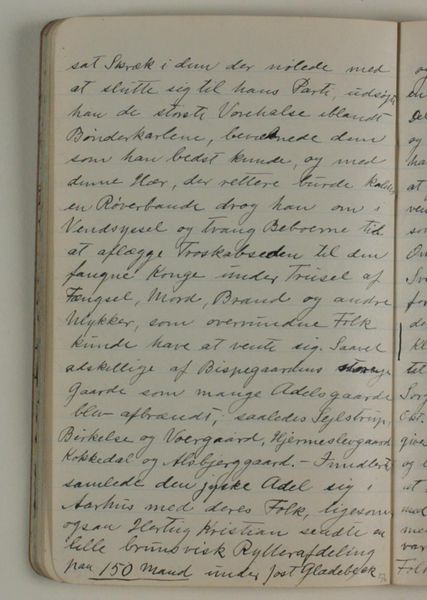 sat Skræk i dem der nølede med
at slutte sig til hans Parti, udsøgte
han de største Vovehalse iblandt
Bønderkarlene, bevæbnede dem
som han bedst kunde, og med
denne Hær, der rettere burde kaldes
en Røverbande drog han om i
Vendsyssel og tvang Beboerne til
at aflægge Troskabseden til den
fangne Konge under Trusel af
Fængsel, Mord, Brand og andre
Ulykker, som overvundne Folk
kunde have at vente sig. Saavel
adskillige af Bispegaardens
Gaarde som mange Adelsgaarde
blev afbrændt, saaledes Sejlstrup,
Birkelse og Voergaard, Hjermeslevgaard
Kokkedal og Aisbjerggaard. - Imidlertid
samlede den jyske Adel sig i
Aarhus med deres Folk, ligesom
ogsaa Hertug Kristian sendte en
lille brunsvisk Rytterafdeling
paa 150 Mand under Jost Glædebeck